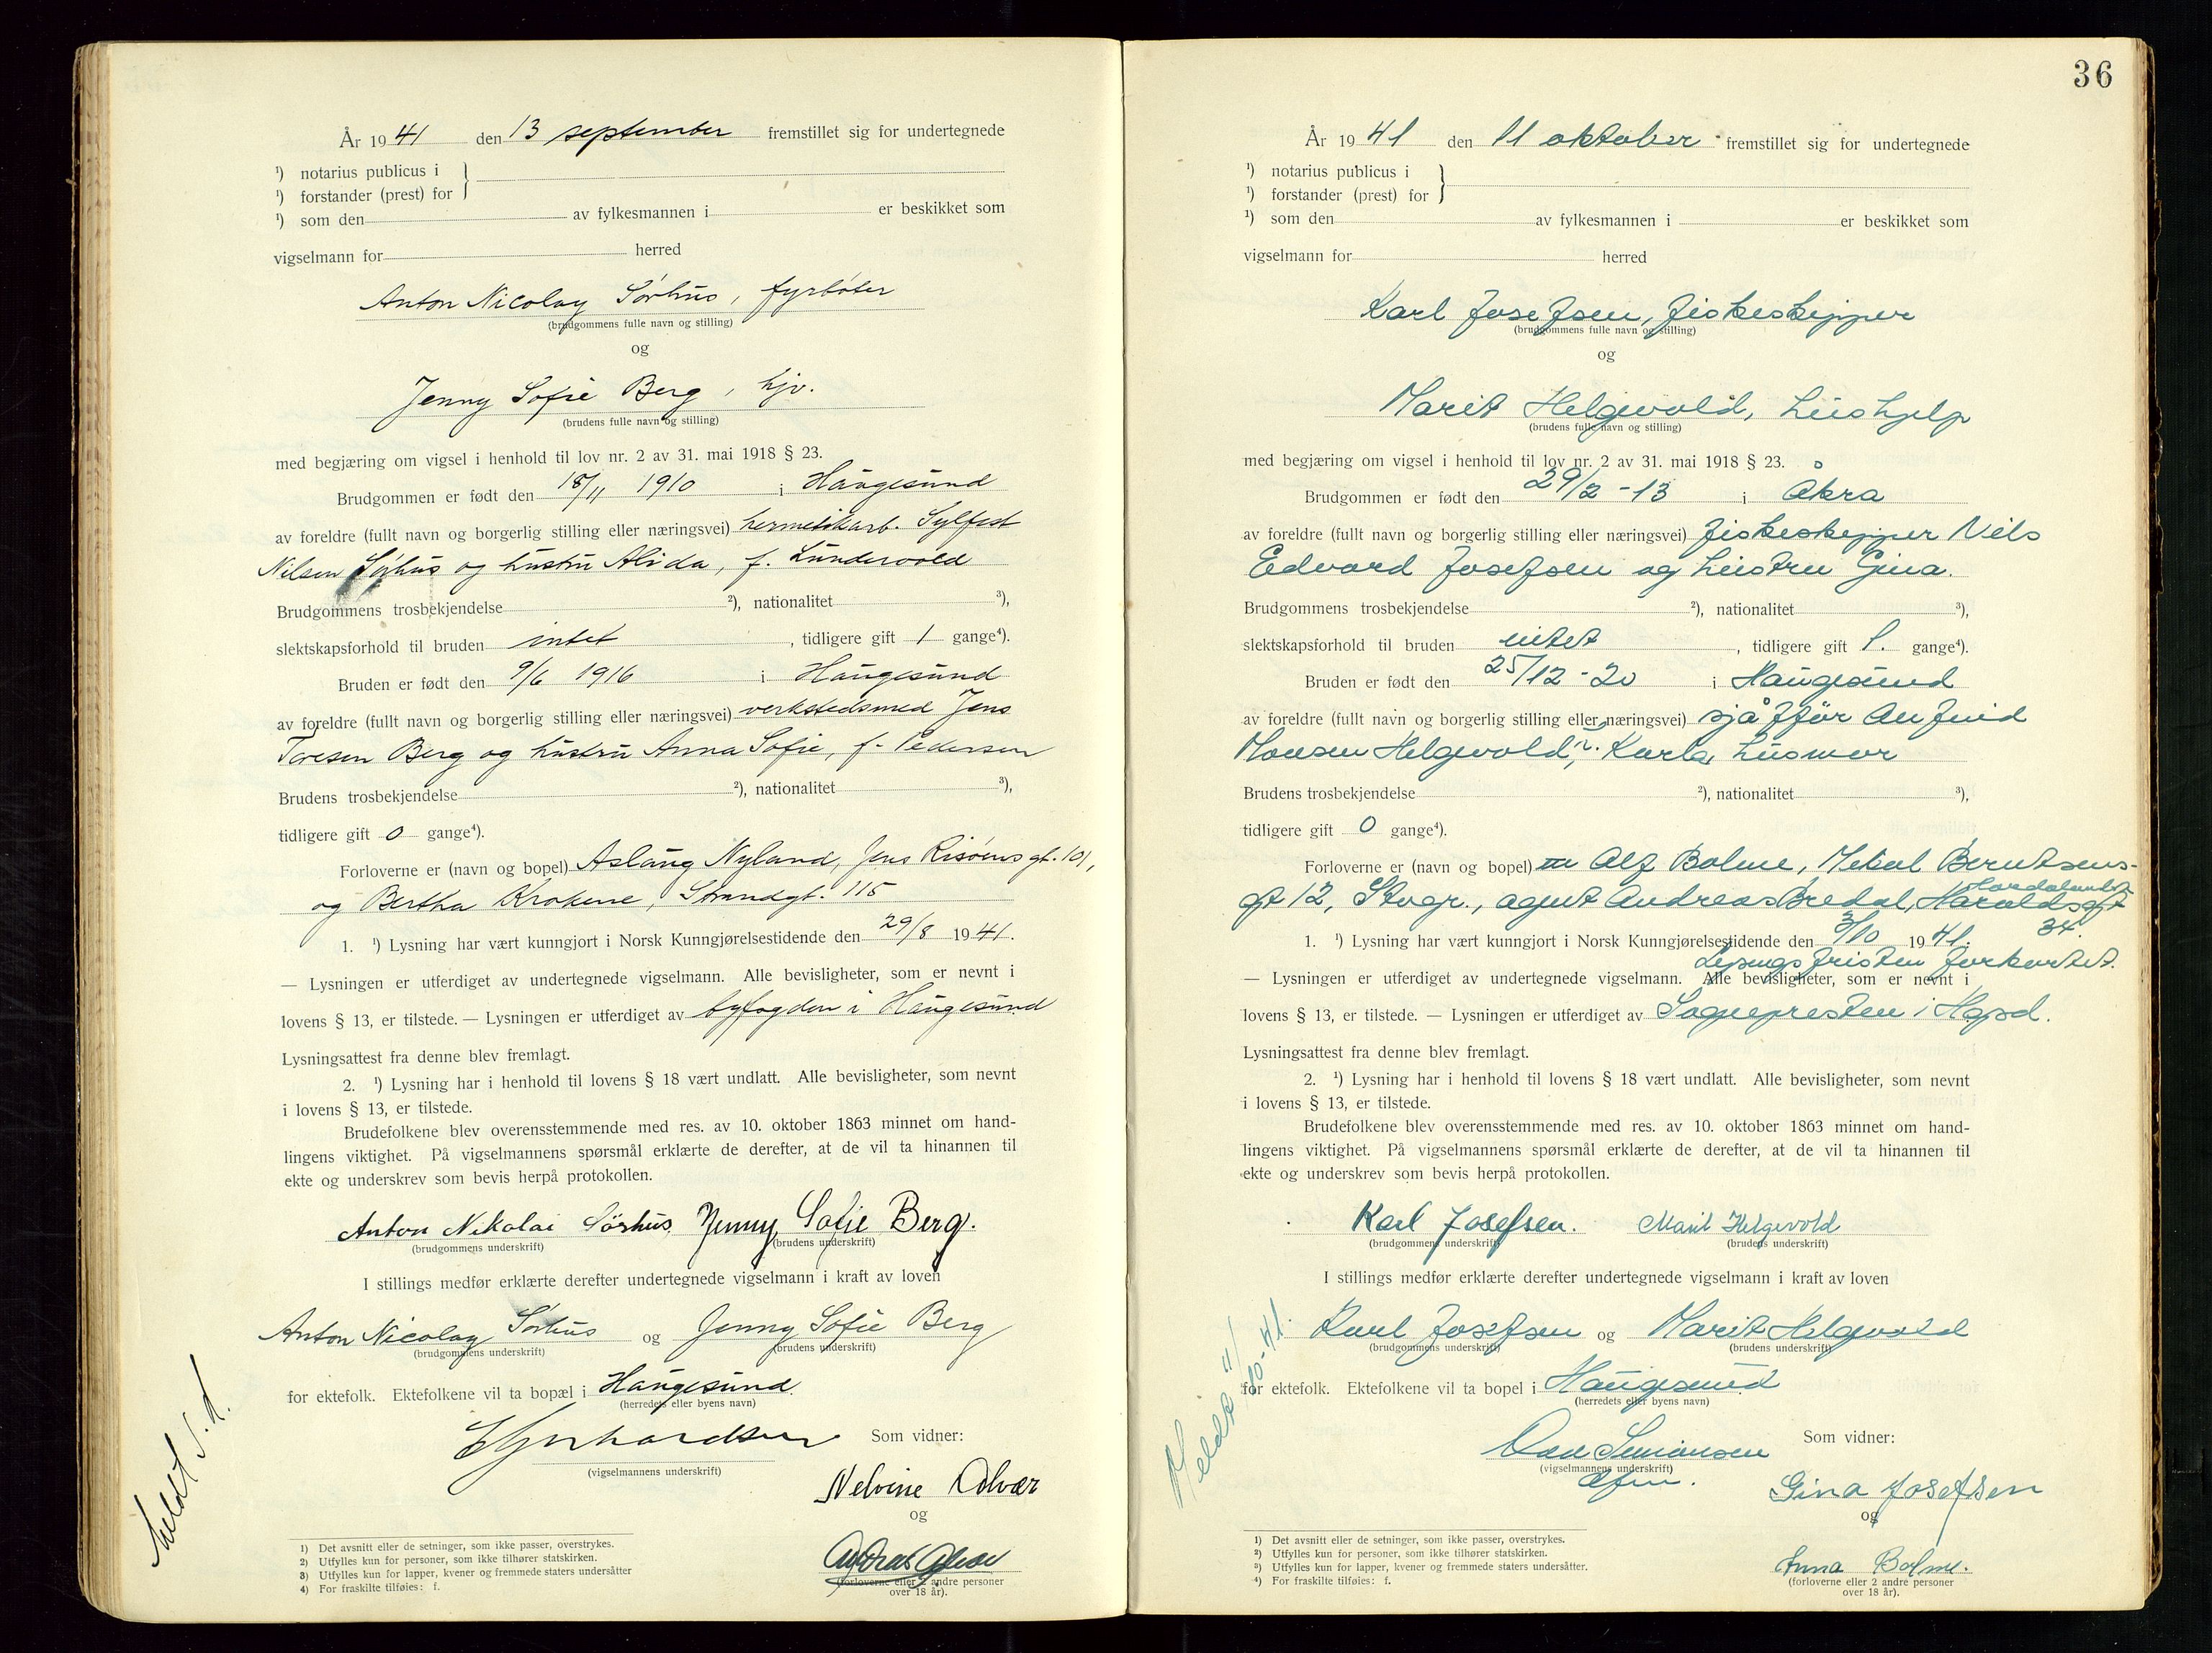 År 1941 den 13 september fremstillet sig for undertegnede
¹) notarius publicus i
¹) forstander (prest) for
¹) som den av fylkesmannen i er beskikket som
vigselmann for herred
Anton Nicolay Sørhus, fyrbøter
(brudgommens fulle navn og stilling)
og
Jenny Sofie Berg, hjv.
(brudens fulle navn og stilling)
med begjæring om vigsel i henhold til lov nr. 2 av 31. mai 1918 § 23.
Brudgommen er født den 18/11 1910 i Haugesund
av foreldre (fullt navn og borgerlig stilling eller næringsvei) hermetikarb. Sylfest
Nilsen Sørhus og hustru Alida, f. Lundervold
Brudgommens trosbekjendelse ²), nationalitet ³),
slektskapsforhold til bruden intet, tidligere gift 1 gange⁴).
Bruden er født den 9/6 1916 i Haugesund
av foreldre (fullt navn og borgerlig stilling eller næringsvei) verkstedsmed Jens
Toresen Berg og hustru Anna Sofie, f. Pedersen
Brudens trosbekjendelse ²), nationalitet ³),
tidligere gift 0 gange⁴).
Forloverne er (navn og bopel) Aslaug Nyland, Jens Risøens gt. 101,
og Bertha Krokene, Strandgt. 115
1. ¹) Lysning har vært kunngjort i Norsk Kunngjørelsestidende den 29/8 1941.
— Lysningen er utferdiget av undertegnede vigselmann. Alle bevisligheter, som er nevnt i
lovens § 13, er tilstede. — Lysningen er utferdiget av byfogden i Haugesund
Lysningsattest fra denne blev fremlagt.
2. ¹) Lysning har i henhold til lovens § 18 vært undlatt. Alle bevisligheter, som nevnt
i lovens § 13, er tilstede.
Brudefolkene blev overensstemmende med res. av 10. oktober 1863 minnet om hand-
lingens viktighet. På vigselmannens spørsmål erklærte de derefter, at de vil ta hinannen til
ekte og underskrev som bevis herpå protokollen.
Anton Nikolai Sörhus. Jenny Sofie Berg.
(brudgommens underskrift) (brudens underskrift)
I stillings medfør erklærte derefter undertegnede vigselmann i kraft av loven
Anton Nicolay Sørhus og Jenny Sofie Berg
(brudgommens underskrift) (brudens underskrift)
for ektefolk. Ektefolkene vil ta bopæl i Haugesund.
(herredets eller byens navn)
Som vidner:
(vigselmannens underskrift)
Nelvine
og
(forloverne eller 2 andre personer
over 18 år).
meldt s. d.
1) Det avsnitt eller de setninger, som ikke passer, overstrykes.
2) Utfylles kun for personer, som ikke tilhører statskirken.
3) Utfylles kun for lapper, kvener og fremmede staters undersåtter
4) For fraskilte tilføies: f.
36
År 1941 den 11 oktober fremstillet sig for undertegnede
¹) notarius publicus i
¹) forstander (prest) for
¹) som den av fylkesmannen i er beskikket som
vigselmann for herred
Karl Josefsen, fiskeskipper
(brudgommens fulle navn og stilling)
og
Marit Helgevold, hushjelp
(brudens fulle navn og stilling)
med begjæring om vigsel i henhold til lov nr. 2 av 31. mai 1918 § 23.
Brudgommen er født den 29/2-13 i Åkra
av foreldre (fullt navn og borgerlig stilling eller næringsvei) fiskeskipper Nils
Edvard Josefsen og hustru Gina.
Brudgommens trosbekjendelse ²), nationalitet ³),
slektskapsforhold til bruden intet, tidligere gift 1. gange⁴).
Bruden er født den 25/12-20 i Haugesund
av foreldre (fullt navn og borgerlig stilling eller næringsvei) sjåffør Anfind
Monsen Helgevold, Karla, husmor
Brudens trosbekjendelse ²), nationalitet ³),
tidligere gift 0 gange⁴).
Forloverne er (navn og bopel) Alf Bolme, Mikal Berntsens-
gt 12, Stvgr., agent Andreas Bredal, Haraldsgt Hordalandsgt
34.
1. ¹) Lysning har vært kunngjort i Norsk Kunngjørelsestidende den 3/10 1941.
Lysningsfristen forkortet.
— Lysningen er utferdiget av undertegnede vigselmann. Alle bevisligheter, som er nevnt i
lovens § 13, er tilstede. — Lysningen er utferdiget av Sognepresten i Hgsd.
Lysningsattest fra denne blev fremlagt.
2. ¹) Lysning har i henhold til lovens § 18 vært undlatt. Alle bevisligheter, som nevnt
i lovens § 13, er tilstede.
Brudefolkene blev overensstemmende med res. av 10. oktober 1863 minnet om hand-
lingens viktighet. På vigselmannens spørsmål erklærte de derefter, at de vil ta hinannen til
ekte og underskrev som bevis herpå protokollen.
Karl Josefsen. Marit Helgevold
(brudgommens underskrift) (brudens underskrift)
I stillings medfør erklærte derefter undertegnede vigselmann i kraft av loven
Karl Josefsen og Marit Helgevold
(brudgommens underskrift) (brudens underskrift)
for ektefolk. Ektefolkene vil ta bopel i Haugesund
(herredets eller byens navn)
Simonsen Som vidner:
(vigselmannens underskrift)
Gina Josefsen
og
Anna Bolme.
(forloverne eller 2 andre personer
over 18 år).
Meldt 11/10-41.
1) Det avsnitt eller de setninger, som ikke passer, overstrykes.
2) Utfylles kun for personer, som ikke tilhører statskirken.
3) Utfylles kun for lapper, kvener og fremmede staters undersåtter.
4) For fraskilte tilføies: f.